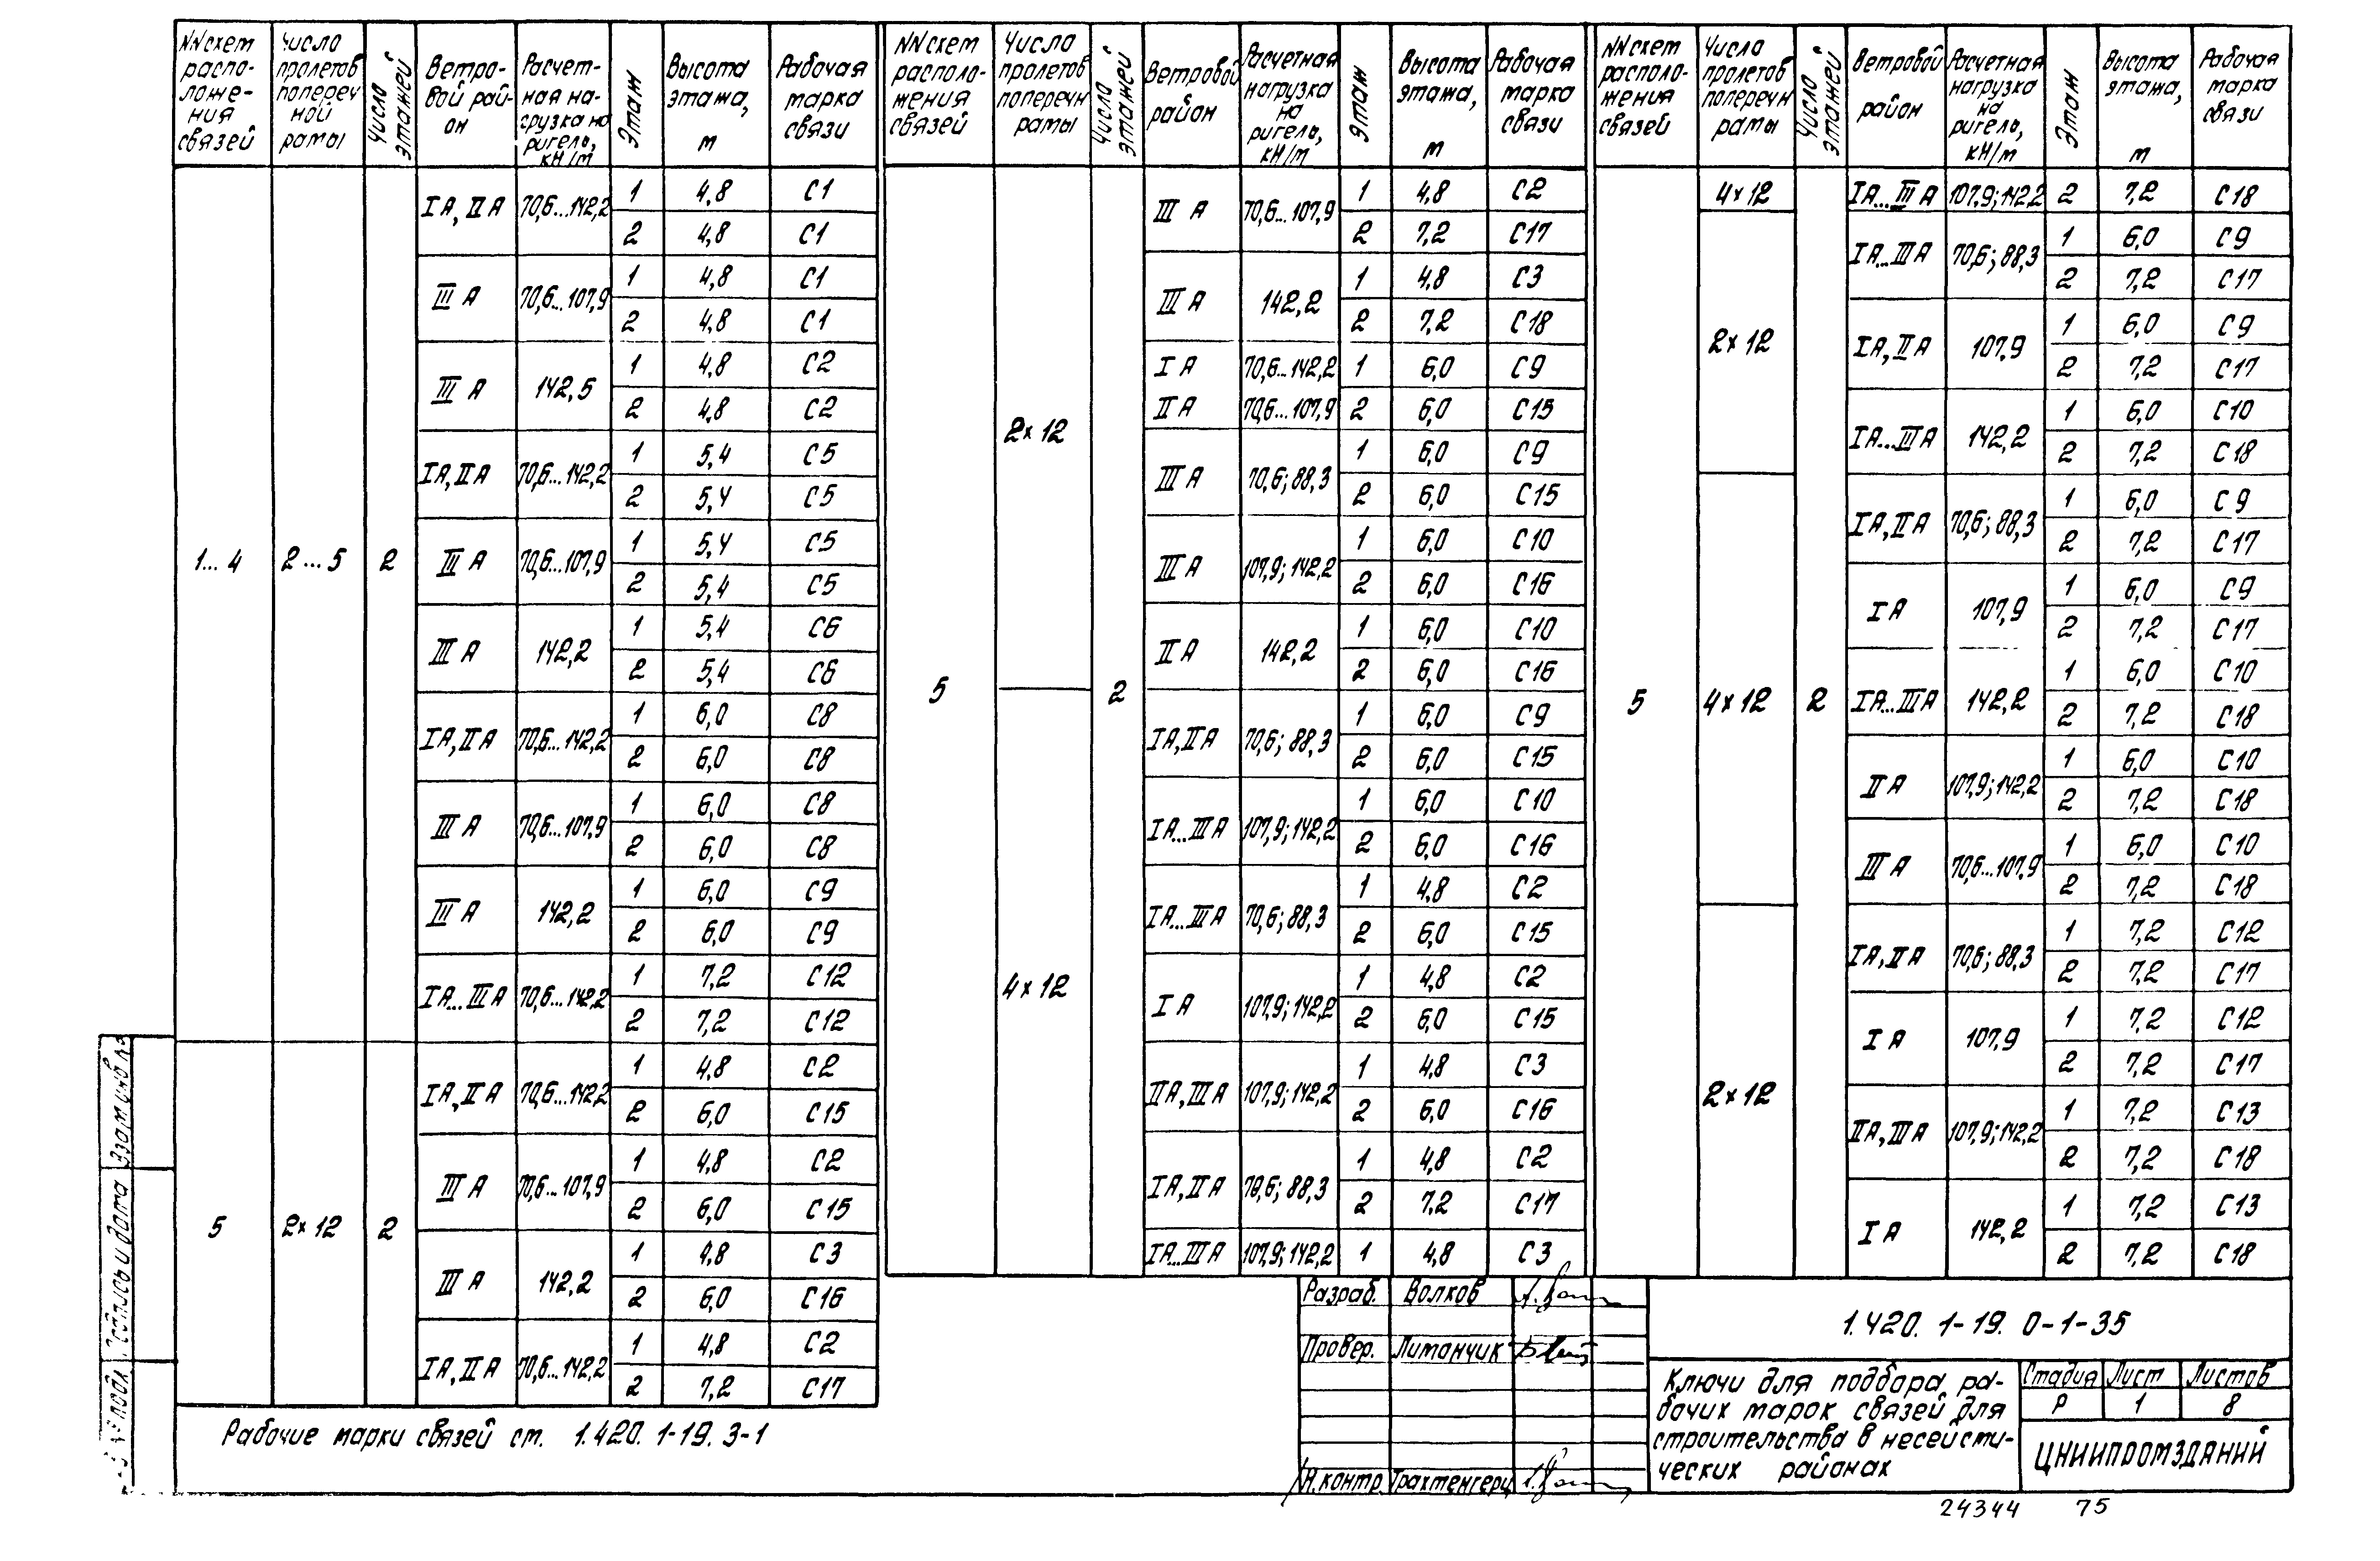 NN схем располо-жения связей | Число пролетов попереч ной рамы | Число этажей | Ветро-вой рай-он | Расчет-ная на-грузка на ригель, кН/м | Этаж | Высота этажа, м | Рабочая марка связи
1...4 | 2...5 | 2 | IА, IIА | 70,6...142,2 | 1 | 4,8 | С1
2 | 4,8 | С1
III А | 70,6...107,9 | 1 | 4,8 | С1
2 | 4,8 | С1
III А | 142,5 | 1 | 4,8 | С2
2 | 4,8 | С2
IА, IIА | 70,6...142,2 | 1 | 5,4 | С5
2 | 5,4 | С5
III А | 70,6...107,9 | 1 | 5,4 | С5
2 | 5,4 | С5
III А | 142,2 | 1 | 5,4 | С6
2 | 5,4 | С6
IА, IIА | 70,6...142,2 | 1 | 6,0 | С8
2 | 6,0 | С8
III А | 70,6...107,9 | 1 | 6,0 | С8
2 | 6,0 | С8
III А | 142,2 | 1 | 6,0 | С9
2 | 6,0 | С9
IА...IIIА | 70,6...142,2 | 1 | 7,2 | С12
2 | 7,2 | С12
5 | 2×12 | 2 | IА, IIА | 70,6...142,2 | 1 | 4,8 | С2
2 | 6,0 | С15
III А | 70,6...107,9 | 1 | 4,8 | С2
2 | 6,0 | С15
III А | 142,2 | 1 | 4,8 | С3
2 | 6,0 | С16
IА, IIА | 70,6...142,2 | 1 | 4,8 | С2
2 | 7,2 | С17
NN схем располо-жения связей | Число пролетов поперечн рамы | Число этажей | Ветровой район | Расчетная нагрузка на ригель, кН/м | Этаж | Высота этажа, м | Рабочая марка связи
5 | 2×12 | 2 | III А | 70,6...107,9 | 1 | 4,8 | С2
2 | 7,2 | С17
III А | 142,2 | 1 | 4,8 | С3
2 | 7,2 | С18
I А | 70,6...142,2 | 1 | 6,0 | С9
II А | 70,6...107,9 | 2 | 6,0 | С15
III А | 70,6; 88,3 | 1 | 6,0 | С9
2 | 6,0 | С15
III А | 107,9; 142,2 | 1 | 6,0 | С10
2 | 6,0 | С16
II А | 142,2 | 1 | 6,0 | С10
2 | 6,0 | С16
4×12 | IА, IIА | 70,6; 88,3 | 1 | 6,0 | С9
2 | 6,0 | С15
IА...IIIА | 107,9; 142,2 | 1 | 6,0 | С10
2 | 6,0 | С16
IА...IIIА | 70,6; 88,3 | 1 | 4,8 | С2
2 | 6,0 | С15
I А | 107,9; 142,2 | 1 | 4,8 | С2
2 | 6,0 | С15
IIА, IIIА | 107,9; 142,2 | 1 | 4,8 | С3
2 | 6,0 | С16
IА, IIА | 70,6; 88,3 | 1 | 4,8 | С2
2 | 7,2 | С17
IА...IIIА | 107,9; 142,2 | 1 | 4,8 | С3
NN схем располо-жения связей | Число пролетов поперечн рамы | Число этажей | Ветровой район | Расчетная нагрузка на ригель, кН/м | Этаж | Высота этажа, м | Рабочая марка связи
5 | 4×12 | 2 | IА...IIIА | 107,9; 142,2 | 2 | 7,2 | С18
2×12 | IА...IIIА | 70,6; 88,3 | 1 | 6,0 | С9
2 | 7,2 | С17
IА, IIА | 107,9 | 1 | 6,0 | С9
2 | 7,2 | С17
IА...IIIА | 142,2 | 1 | 6,0 | С10
2 | 7,2 | С18
4×12 | IА, IIА | 70,6; 88,3 | 1 | 6,0 | С9
2 | 7,2 | С17
I А | 107,9 | 1 | 6,0 | С9
2 | 7,2 | С17
IА...IIIА | 142,2 | 1 | 6,0 | С10
2 | 7,2 | С18
II А | 107,9; 142,2 | 1 | 6,0 | С10
2 | 7,2 | С18
III А | 70,6...107,9 | 1 | 6,0 | С10
2 | 7,2 | С18
2×12 | IА, IIА | 70,6; 88,3 | 1 | 7,2 | С12
2 | 7,2 | С17
I А | 107,9 | 1 | 7,2 | С12
2 | 7,2 | С17
IIА, IIIА | 107,9; 142,2 | 1 | 7,2 | С13
2 | 7,2 | С18
I А | 142,2 | 1 | 7,2 | С13
2 | 7,2 | С18
Рабочие марки связей ст. 1.420. 1-19. 3-1
Разраб. Волков
Провер. Лиманчик
Н.контр. Трахтенгерц
1.420. 1-19. 0-1-35
Ключи для подбора ра-
бочих марок связей для
строительства в несейсми-
ческих районах
Стадия Лист Листов
Р 1 8
ЦНИИПРОМЗДАНИЙ
подл
Подпись и дата
Взам инв
24344 75